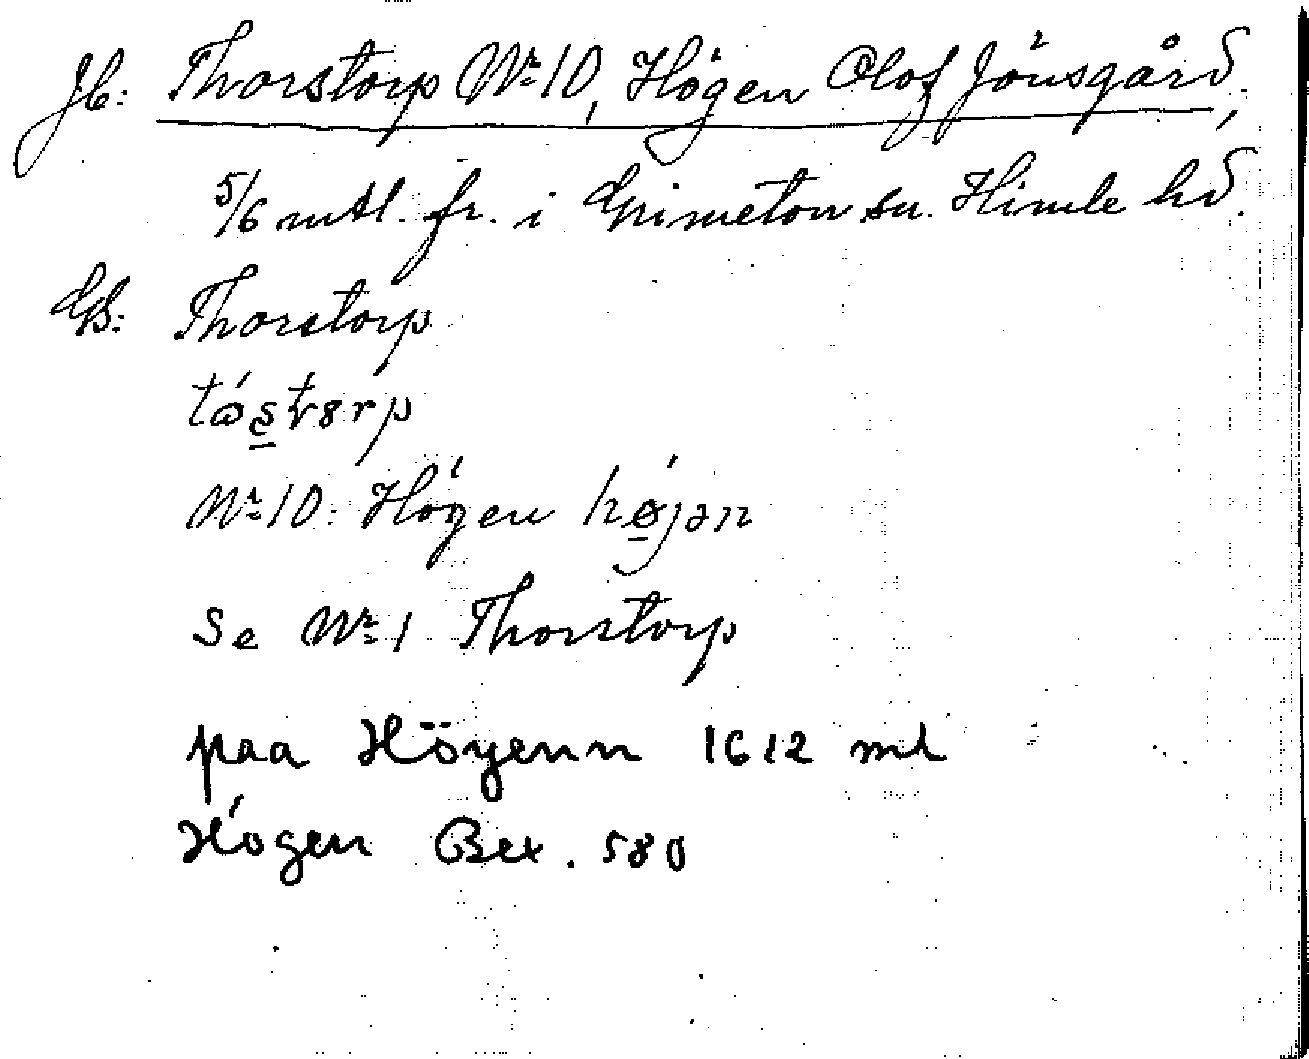 Jb: Thorstorp No 10, Högen Olof Jönsgård,
5/6 mtl. fr. i Grimeton sn. Himle hd.
GB: Thorstorp
No 10: Högen
Se No 1 Thorstorp
paa Höyenn 1612 ml
Högen Bex. 580